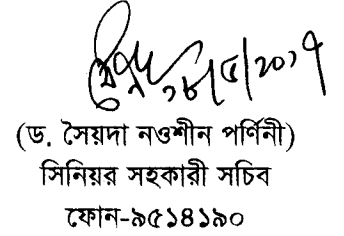 ১৮/৫/২০১৭
(ড. সৈয়দা নওশীন পর্ণিনী)
সিনিয়র সহকারী সচিব
ফোন-৯৫১৪১৯০